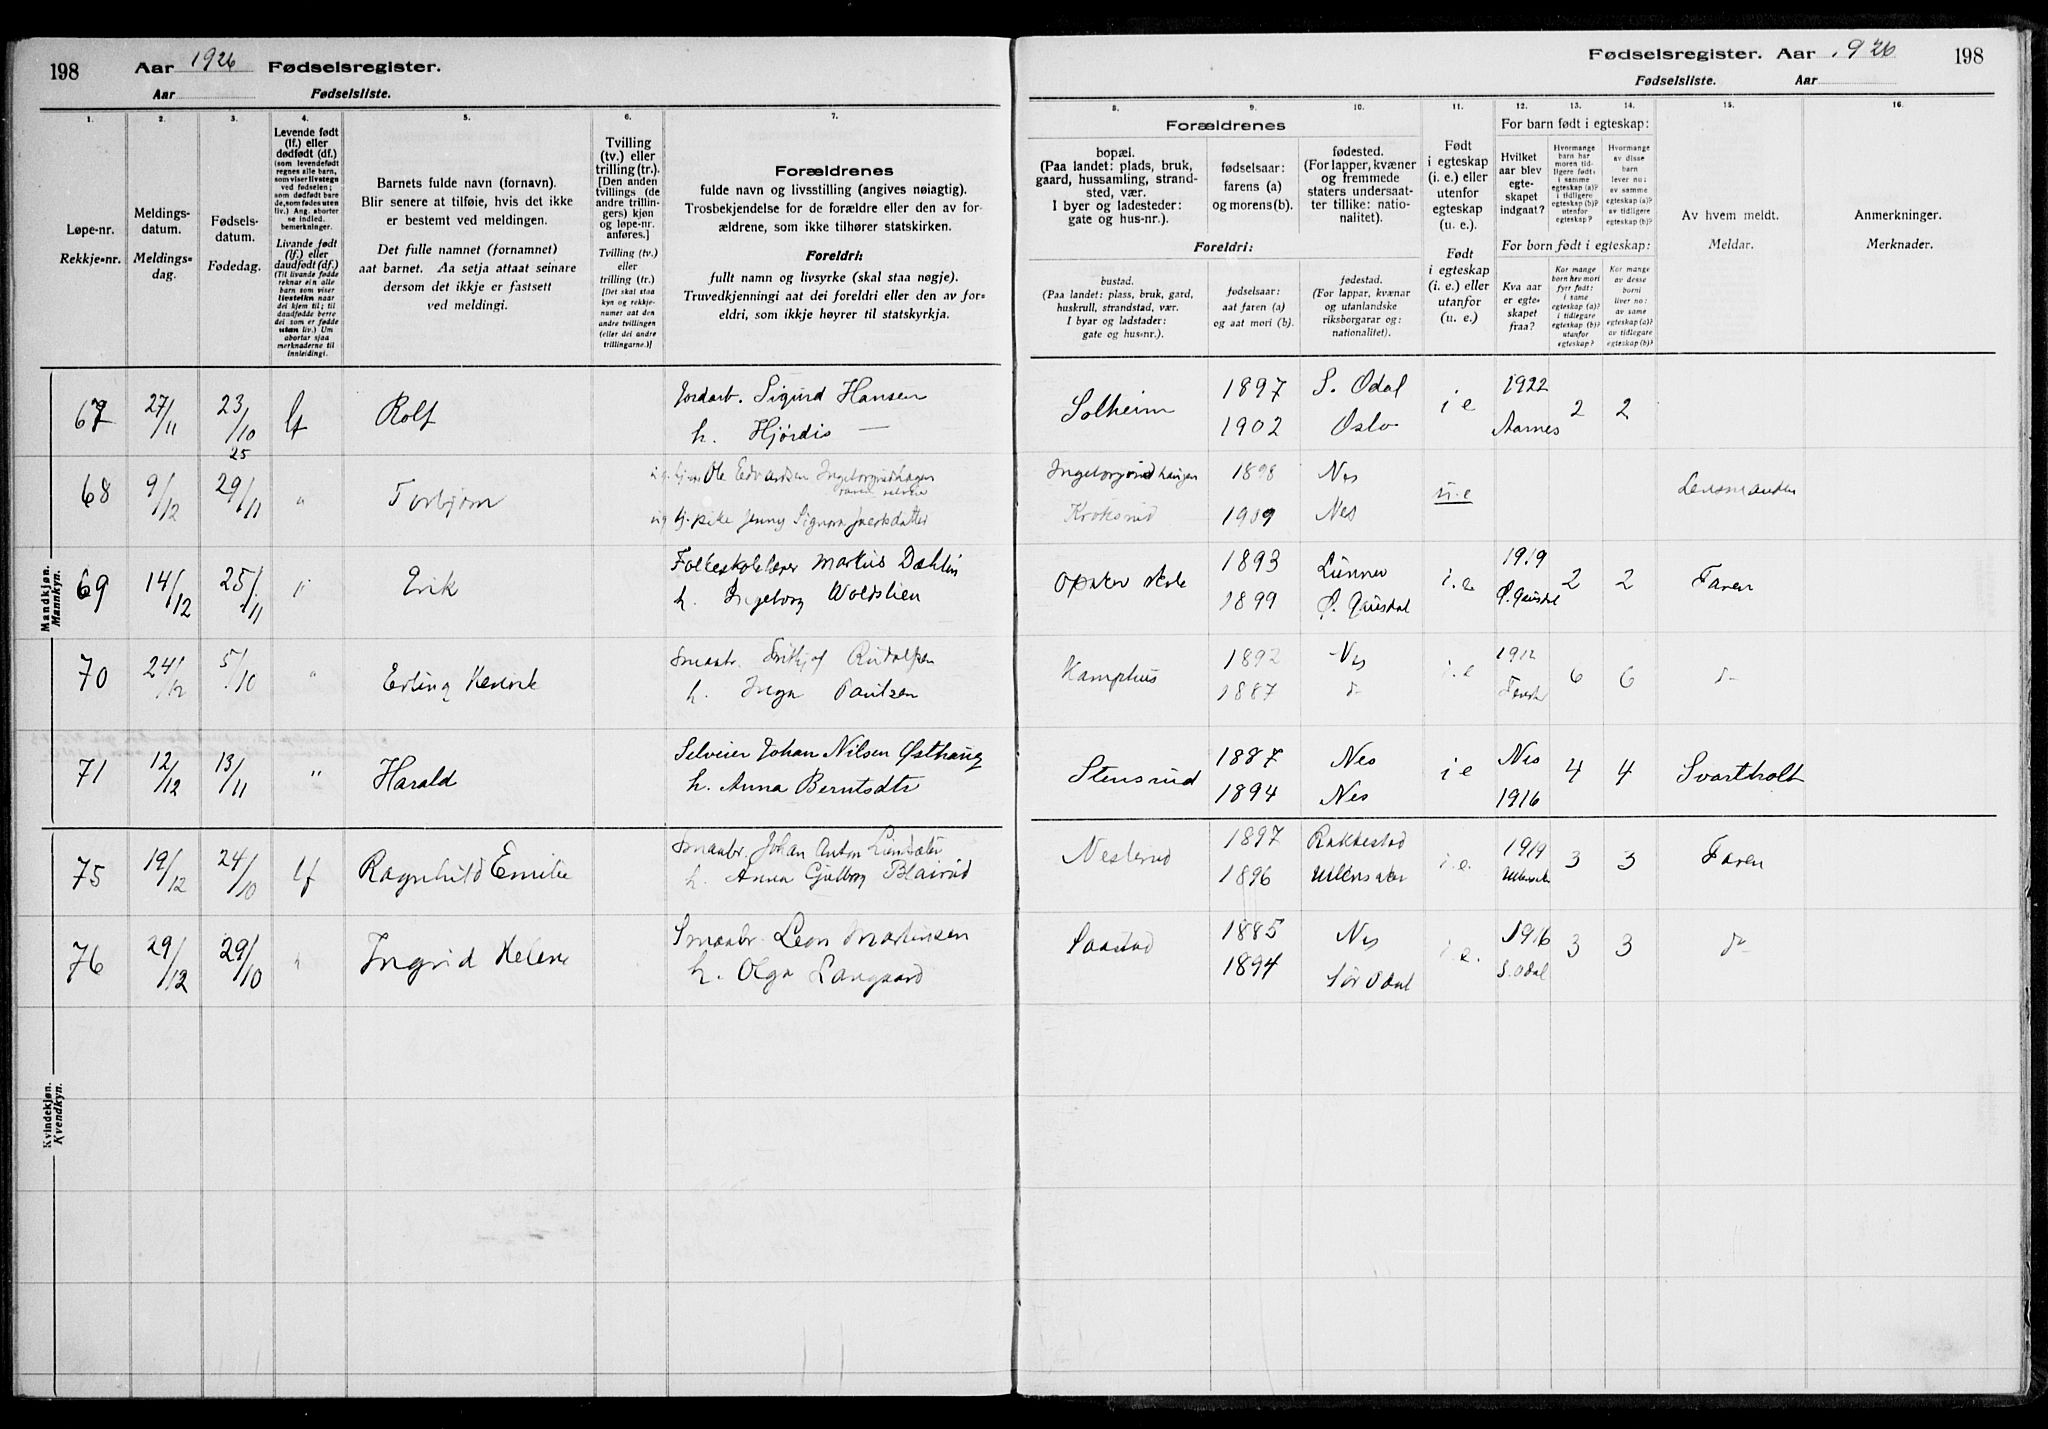 198
Aar 1926 Fødselsregister.
Aar Fødselsliste.
1.
2.
3.
4.
5.
6.
7.
Løpe-nr.
Rekkje-nr.
Meldings-
datum.
Meldings-
dag.
Fødsels-
datum.
Fødedag.
Levende født
(lf.) eller
dødfødt (df.)
(som levendefødt
regnes alle barn,
som viser livstegn
ved fødselen;
som dødfødt bare
de, som fødes uten
liv.) Ang. aborter
se indled.
bemerkninger.
Livande født
(lf.) eller
daudfødt (df.)
(Til livande fødde
reknar ein alle
barn som viser
livsteikn naar
dei kjem til; til
daudfødde berre
dei som er fødde
utan liv.) Um
abortar sjaa
merknaderne til
innleidingi.
Barnets fulde navn (fornavn).
Blir senere at tilføie, hvis det ikke
er bestemt ved meldingen.
Det fulle namnet (fornamnet)
aat barnet. Aa setja attaat seinare
dersom det ikkje er fastsett
ved meldingi.
Tvilling
(tv.) eller
trilling (tr.).
[Den anden
tvillings (de
andre trillin-
gers) kjøn
og løpe-nr.
anføres.]
Tvilling (tv.)
eller
trilling (tr.)
[Det skal staa
kyn og rekkje-
numer aat den
andre tvillingen
(eller dei andre
trillingarne.)]
Forældrenes
fulde navn og livsstilling (angives nøiagtig).
Trosbekjendelse for de forældre eller den av for-
ældrene, som ikke tilhører statskirken.
Foreldri:
fullt namn og livsyrke (skal staa nøgje).
Truvedkjenningi aat dei foreldri eller den av for-
eldri, som ikkje høyrer til statskyrkja.
Mandkjøn.
Mannkyn.
67 27/11 23/10 lf Rolf Jordarb. Sigurd Hansen
h. Hjørdis —
25
68 9/12 29/11 " Torbjørn Ole Edvardsen Ingeborgrudhagen
pike Jenny
69 14/12 25/11 " Erik Folkeskolelærer Markus Dæhlin
h. Ingeborg Woldslien
70 24/12 5/10 " Erling Henrik Smaabr. Fritjof Rudolfsen
h. Inga Paulsen
71 12/12 13/11 " Harald Selveier Johan Nilsen Østhaug
h. Anna Berntsdtr
Kvindekjøn.
Kvendkyn.
75 19/12 24/10 lf Ragnhild Emilie Smaabr. Johan Anton
h. Anna Gjulborg
76 29/12 29/10 " Ingrid Helene Smaabr. Leon Martinsen
h. Olga Langaard
Fødselsregister. Aar 1926 198
Fødselsliste. Aar
8.
9.
10.
11.
12.
13.
14.
15.
16.
Forældrenes
bopæl.
(Paa landet: plads, bruk,
gaard, hussamling, strand-
sted, vær.
I byer og ladesteder:
gate og hus-nr.).
fødselsaar:
farens (a)
og morens (b).
fødested.
(For lapper, kvæner
og fremmede
staters undersaat-
ter tillike: natio-
nalitet).
Foreldri:
bustad.
(Paa landet: plass, bruk, gard,
huskrull, strandstad, vær.
I byar og ladstader:
gate og hus-nr.).
fødselsaar:
aat faren (a)
og aat mori (b).
fødestad.
(For lappar, kvænar
og utanlandske
riksborgarar og:
nationalitet).
Født
i egteskap
(i. e.) eller
utenfor
egteskap
(u. e.).
Født
i egteskap
(i. e.) eller
utanfor
egteskap
(u. e.).
For barn født i egteskap:
Hvilket
aar blev
egte-
skapet
indgaat?
Hvormange
barn har
moren tid-
ligere født:
i samme
egteskap (a)?
i tidligere
egteskap (b)?
utenfor
egteskap?
Hvormange
av disse
barn
lever nu:
av samme
egteskap (a)?
av tidligere
egteskap (b)?
For born født i egteskap:
Kva aar
er egte-
skapet
fraa?
Kor mange
born hev mori
fyrr født:
i same
egteskap (a)?
i tidlegare
egteskap (b)?
utanfor
egteskap?
Kor mange
av desse
borni
liver no:
av same
egteskap (a)?
av tidlegare
egteskap (b)?
Av hvem meldt.
Meldar.
Anmerkninger.
Merknader.
Solheim 1897 S. Odal i e 1922 2 2
1902 Oslo Aarnes
Ingeborgrudhaugen 1898 Nes u.e Lensmanden
Kroksrud 1909 Nes
Opaker skole 1893 Lunner i.e 1919 2 2 Faren
1899 Ø. Gausdal Ø. Gausdal
Kamphus 1892 Nes i.e 1912 6 6 d-
1887 d-
Stensrud 1887 Nes i e Nes 4 4 Svartholt
1894 Nes 1916
Nesterud 1897 Rakkestad i.e. 1919 3 3 Faren
1896 Ullensaker Ullensaker
1885 Nes i.e. 1916 3 3 d-
1894 Sør Odal S. Odal